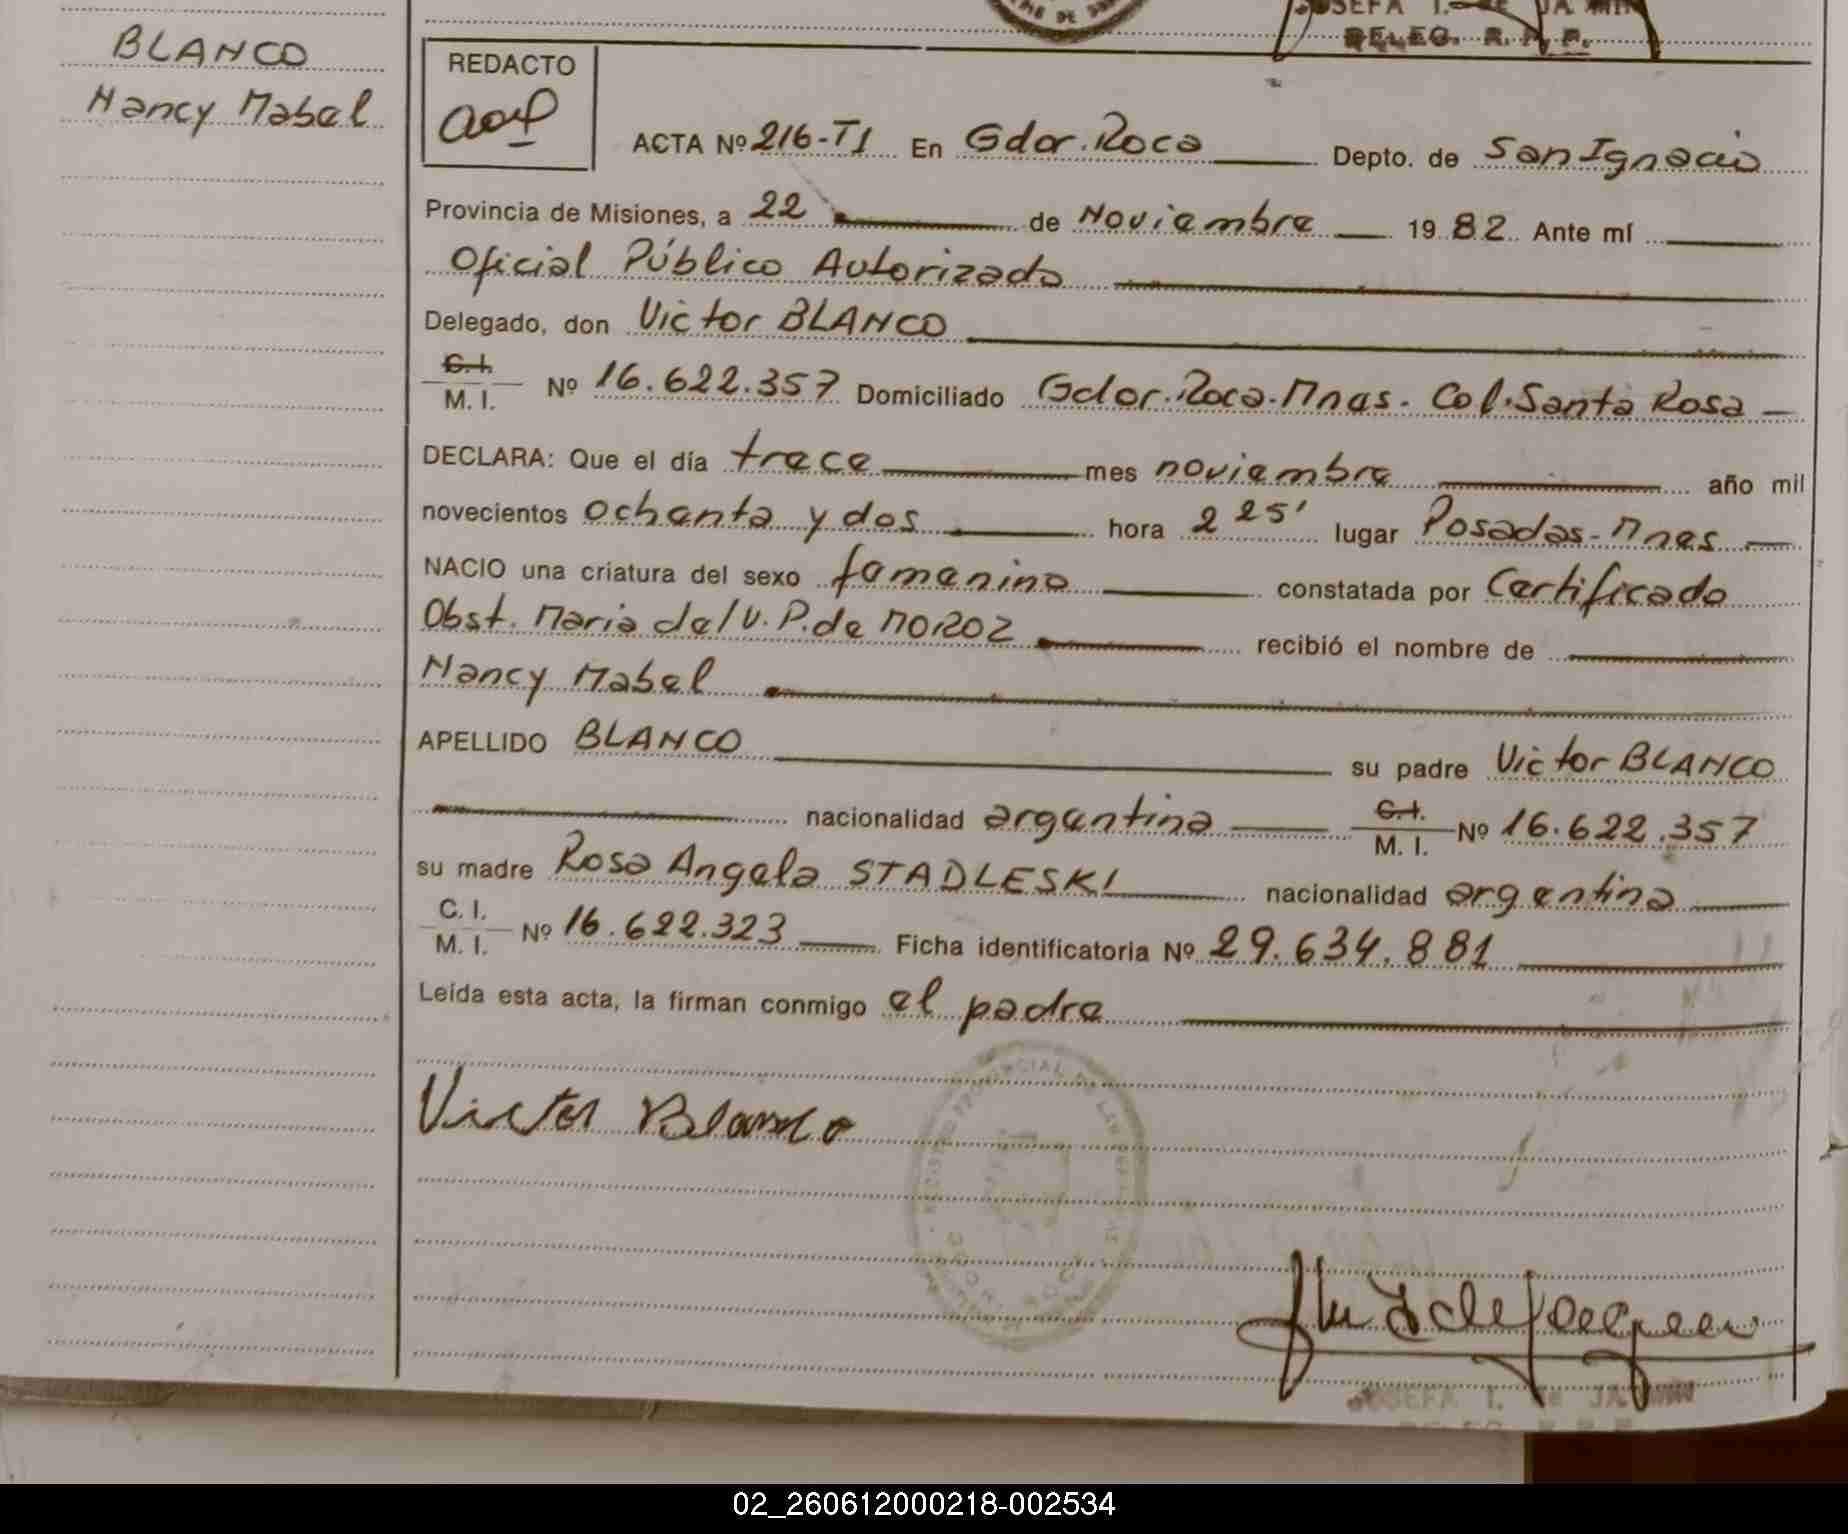 BLANCO
Nancy Mabel
DELEG. R. P. P.
REDACTO
ACTA Nº 216-T1 En Gdor. Roca Depto. de San Ignacio
Provincia de Misiones, a 22 de Noviembre 19 82 Ante mí
Oficial Público Autorizado
Delegado, don Victor BLANCO
C.I.
M. I. Nº 16.622.357 Domiciliado Gdor. Roca - Mnes - Col. Santa Rosa
DECLARA: Que el día trece mes noviembre año mil
novecientos ochenta y dos hora 2 25' lugar Posadas - Mnes
NACIO una criatura del sexo femenino constatada por Certificado
Obst. Maria del V. P. de MOROZ recibió el nombre de
Nancy Mabel
APELLIDO BLANCO su padre Victor BLANCO
nacionalidad argentina C.I. M. I. Nº 16.622.357
su madre Rosa Angela STADLESKI nacionalidad argentina
C. I. M. I. Nº 16.622.323 Ficha identificatoria Nº 29.634.881
Leída esta acta, la firman conmigo el padre
Victor Blanco
JOSEFA I.
02_260612000218-002534